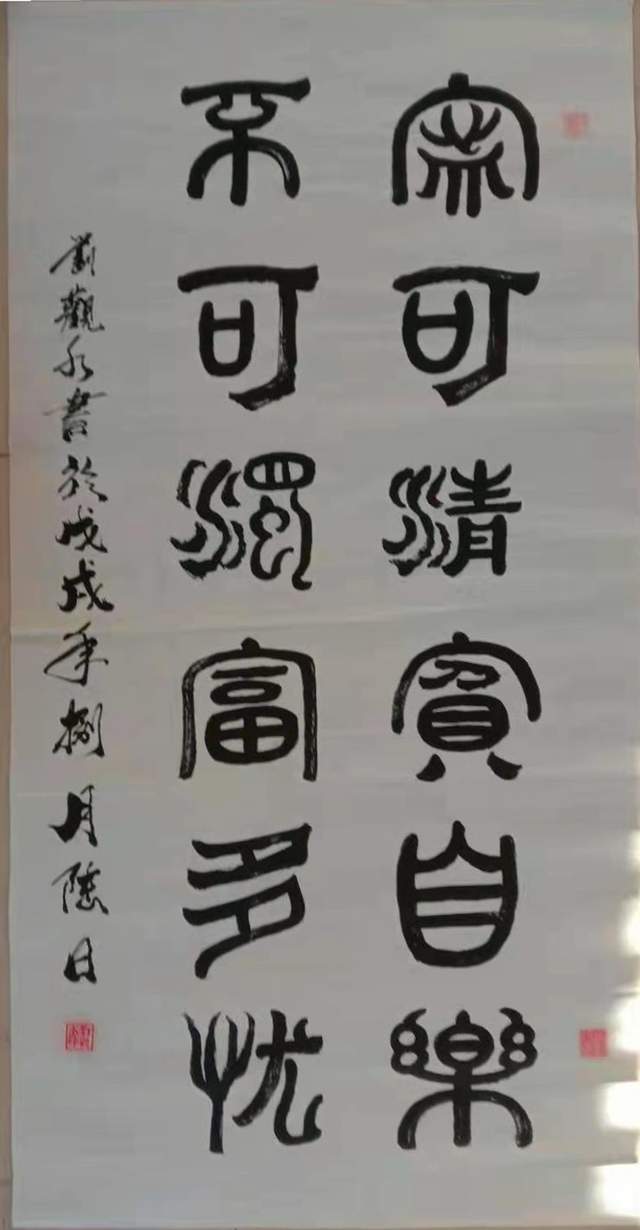 寧可清貧自樂
不可濁富多忧
劉觀水書於戊戌年捌月陸日